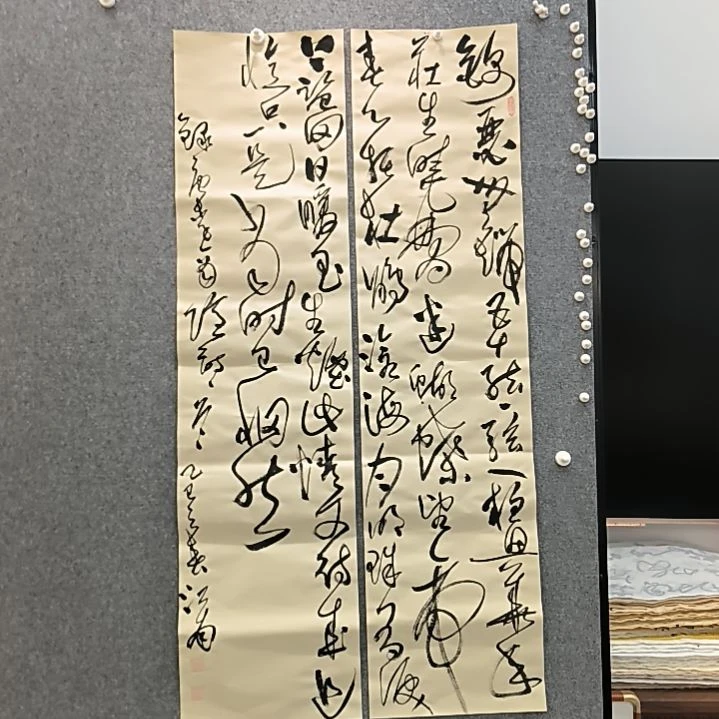 錦瑟無端五十弦一弦一柱思華年
莊生曉夢迷蝴蝶望帝
春心托杜鵑滄海月明珠有淚
藍田日暖玉生煙此情可待成追
憶只是當時已惘然
錄唐李商隱 乙巳之春